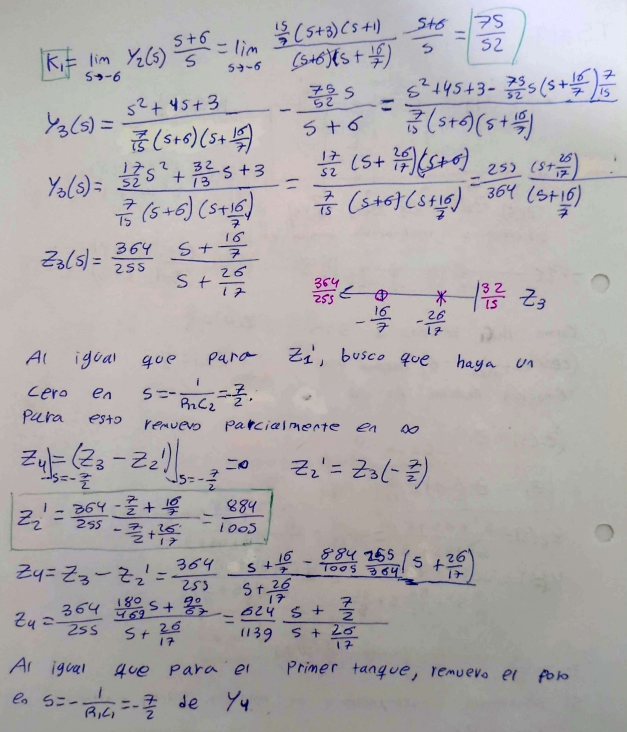 K₁ = lim_{s→-6} Y₂(s) (s+6)/s = lim_{s→-6} (15/7 (s+3)(s+1))/((s+6)(s+16/7)) (s+6)/s = 75/52
Y₃(s) = (s²+4s+3)/(7/15 (s+6)(s+16/7)) - (75/52 s)/(s+6) = (s²+4s+3 - 75/52 s(s+16/7) 7/15)/(7/15 (s+6)(s+16/7))
Y₃(s) = (17/52 s² + 32/13 s + 3)/(7/15 (s+6)(s+16/7)) = (17/52 (s+26/17)(s+6))/(7/15 (s+6)(s+16/7)) = 255/364 (s+26/17)/(s+16/7)
Z₃(s) = 364/255 (s+16/7)/(s+26/17)
364/255 -16/7 -26/17 32/15 Z₃
Al igual que para Z₁', busco que haya un
cero en s=-1/(R₂C₂)=7/2.
Para esto remuevo parcialmente en ∞
Z₄|_{s=-7/2} = (Z₃ - Z₂')|_{s=-7/2} = 0 Z₂' = Z₃(-7/2)
Z₂' = 364/255 (-7/2 + 16/7)/(-7/2 + 26/17) = 884/1005
Z₄ = Z₃ - Z₂' = 364/255 (s+16/7 - 884/1005 255/364 (s+26/17))/(s+26/17)
Z₄ = 364/255 (180/469 s + 90/67)/(s+26/17) = 624/1139 (s+7/2)/(s+26/17)
Al igual que para el primer tanque, remuevo el polo
en s=-1/(R₁C₁)=-7/2 de Y₄